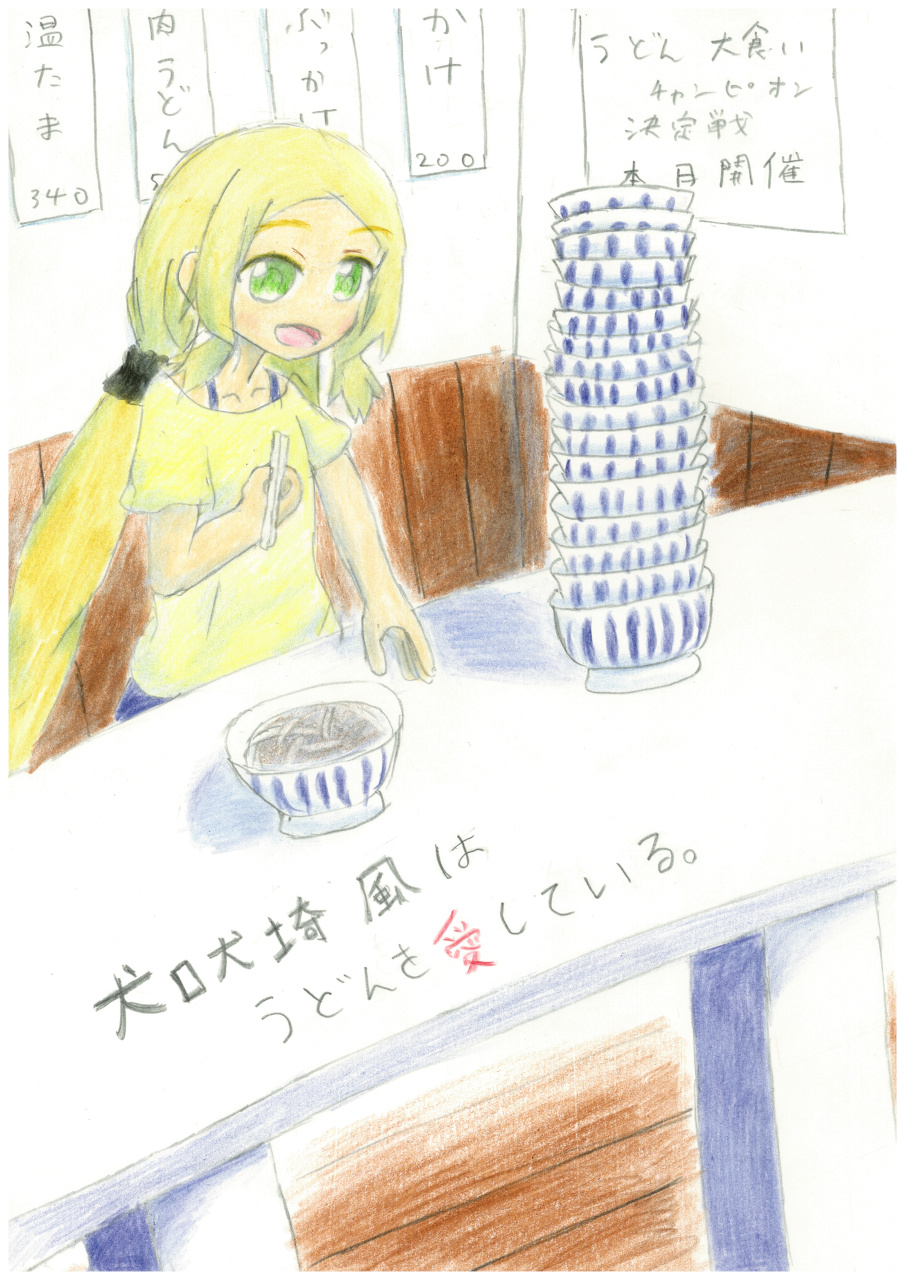 温たま
340
肉うどん
5
ぶっかけ
かけ
200
うどん 大食い
チャンピオン
決定戦
本日開催
犬吠埼 風は
うどんを愛している。